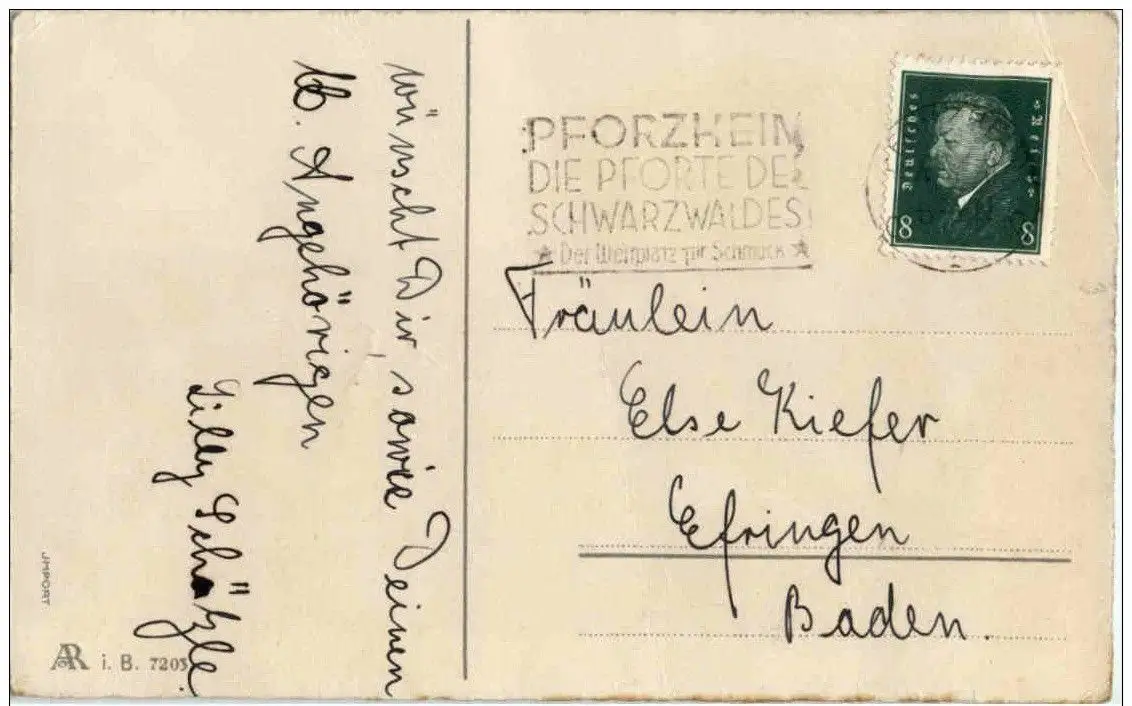 wünscht Dir, sowie Deinen
lb. Angehörigen
Lilly Schätzle.
JMPORT
AR i. B. 7203
PFORZHEIM
DIE PFORTE DES
SCHWARZWALDES
★ Der Weltplatz für Schmuck ★
Deutsches Reich
8 8
Fräulein
Else Kiefer
Efringen
Baden.